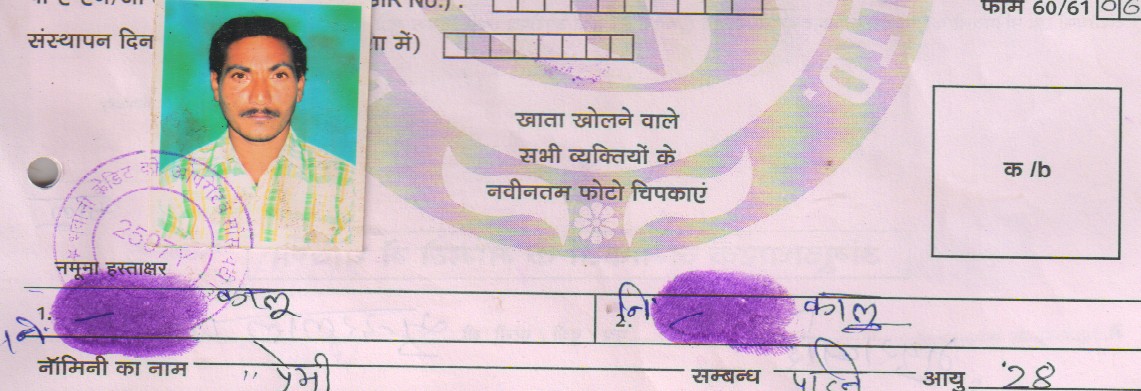 GIR No.) :
फार्म 60/61 06
संस्थापन दिन
में)
LTD.
खाता खोलने वाले
सभी व्यक्तियों के
नवीनतम फोटो चिपकाएं
क /b
भवानी क्रेडिट को
2507Y
नमूना हस्ताक्षर
1. नि. कालू
2. नि कालु
नॉमिनी का नाम " प्रेमी सम्बन्ध पत्नि आयु 28